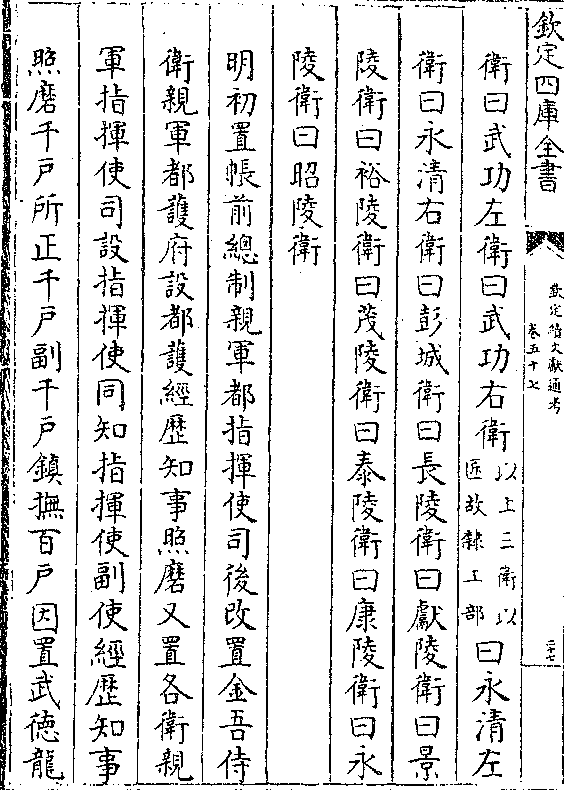 欽定四庫全書
欽定續文獻通考
卷五十七
二十七
衛曰武功左衛曰武功右衛以上三衛以匠故隸工部曰永清左
衛曰永清右衛曰彭城衛曰長陵衛曰獻陵衛曰景
陵衛曰裕陵衛曰茂陵衛曰泰陵衛曰康陵衛曰永
陵衛曰昭陵衛
明初置帳前總制親軍都指揮使司後改置金吾侍
衛親軍都護府設都護經歷知事照磨又置各衛親
軍指揮使司設指揮使同知指揮使副使經歷知事
照磨千戶所正千戶副千戶鎮撫百戶因置武德龍